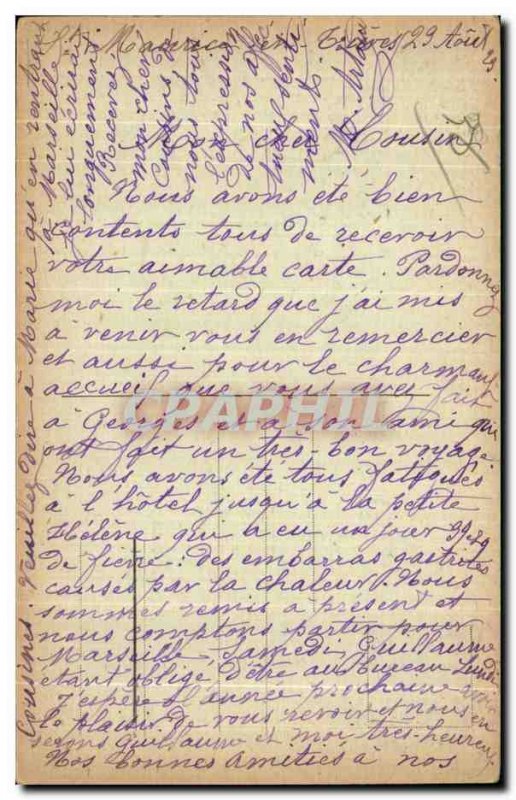 St Maurice 29 Août
Mon cher Cousin
Nous avons été bien
contents tous de recevoir
votre aimable carte. Pardonnez
moi le retard que j'ai mis
à venir vous en remercier
et aussi pour le charmant
accueil que vous avez fait
à Georges et à son ami qui
ont fait un très bon voyage
Nous avons été tous fatigués
à l'hôtel jusqu'à la petite
Hélène qui a eu un jour
de fièvre: des embarras gastriques
causés par la chaleur. Nous
sommes remis à présent et
nous comptons partir pour
Marseille, Samedi, Guillaume
étant obligé d'être au bureau Lundi
J'espère l'année prochaine avoir
le plaisir de vous revoir et nous en
serons Guillaume et moi très heureux
Nos bonnes amitiés à nos
Cousines. Veuillez dire à Marie qu'en rentrant
à Marseille
je lui écrirai
longuement
Recevez
mon cher
Cousin de
nous tous
l'expression
de nos affec
tueux senti
ments.
M. Artaud
CPAPHIL